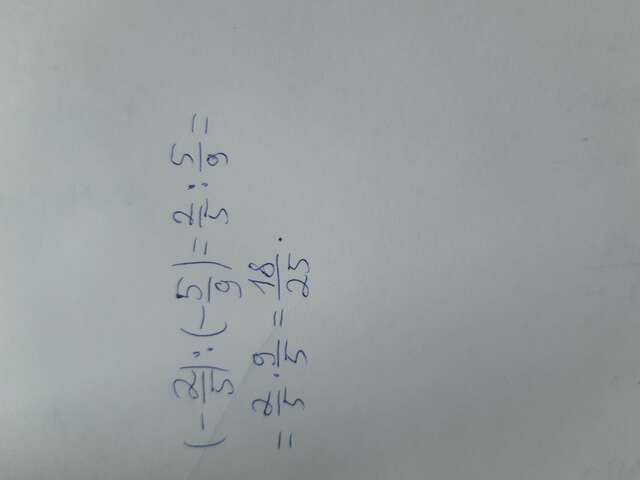 (-2/5) : (-5/9) = 2/5 : 5/9 =
= 2/5 · 9/5 = 18/25.